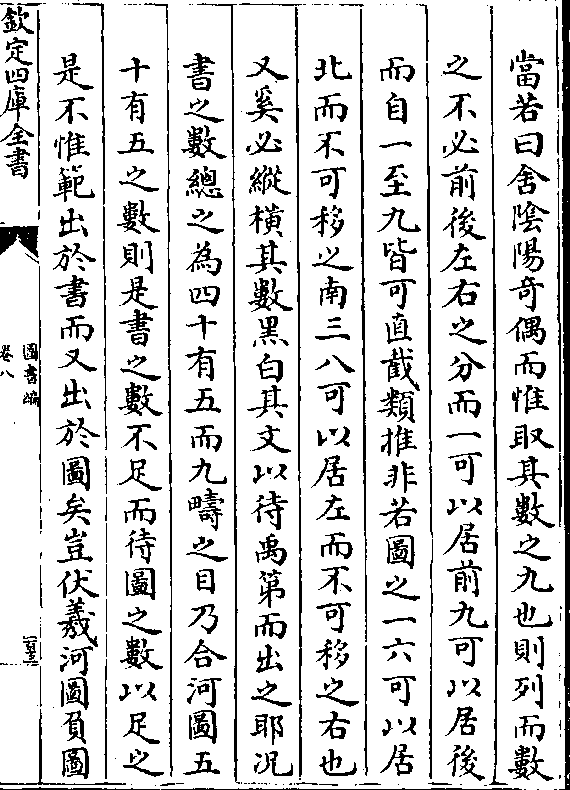 當若曰舍陰陽奇偶而惟取其數之九也則列而數
之不必前後左右之分而一可以居前九可以居後
而自一至九皆可直截類推非若圖之一六可以居
北而不可移之南三八可以居左而不可移之右也
又奚必縱橫其數黑白其文以待禹第而出之耶况
書之數總之為四十有五而九疇之目乃合河圖五
十有五之數則是書之數不足而待圖之數以足之
是不惟範出於書而又出於圖矣豈伏羲河圖負圖
欽定四庫全書
圖書編
卷八